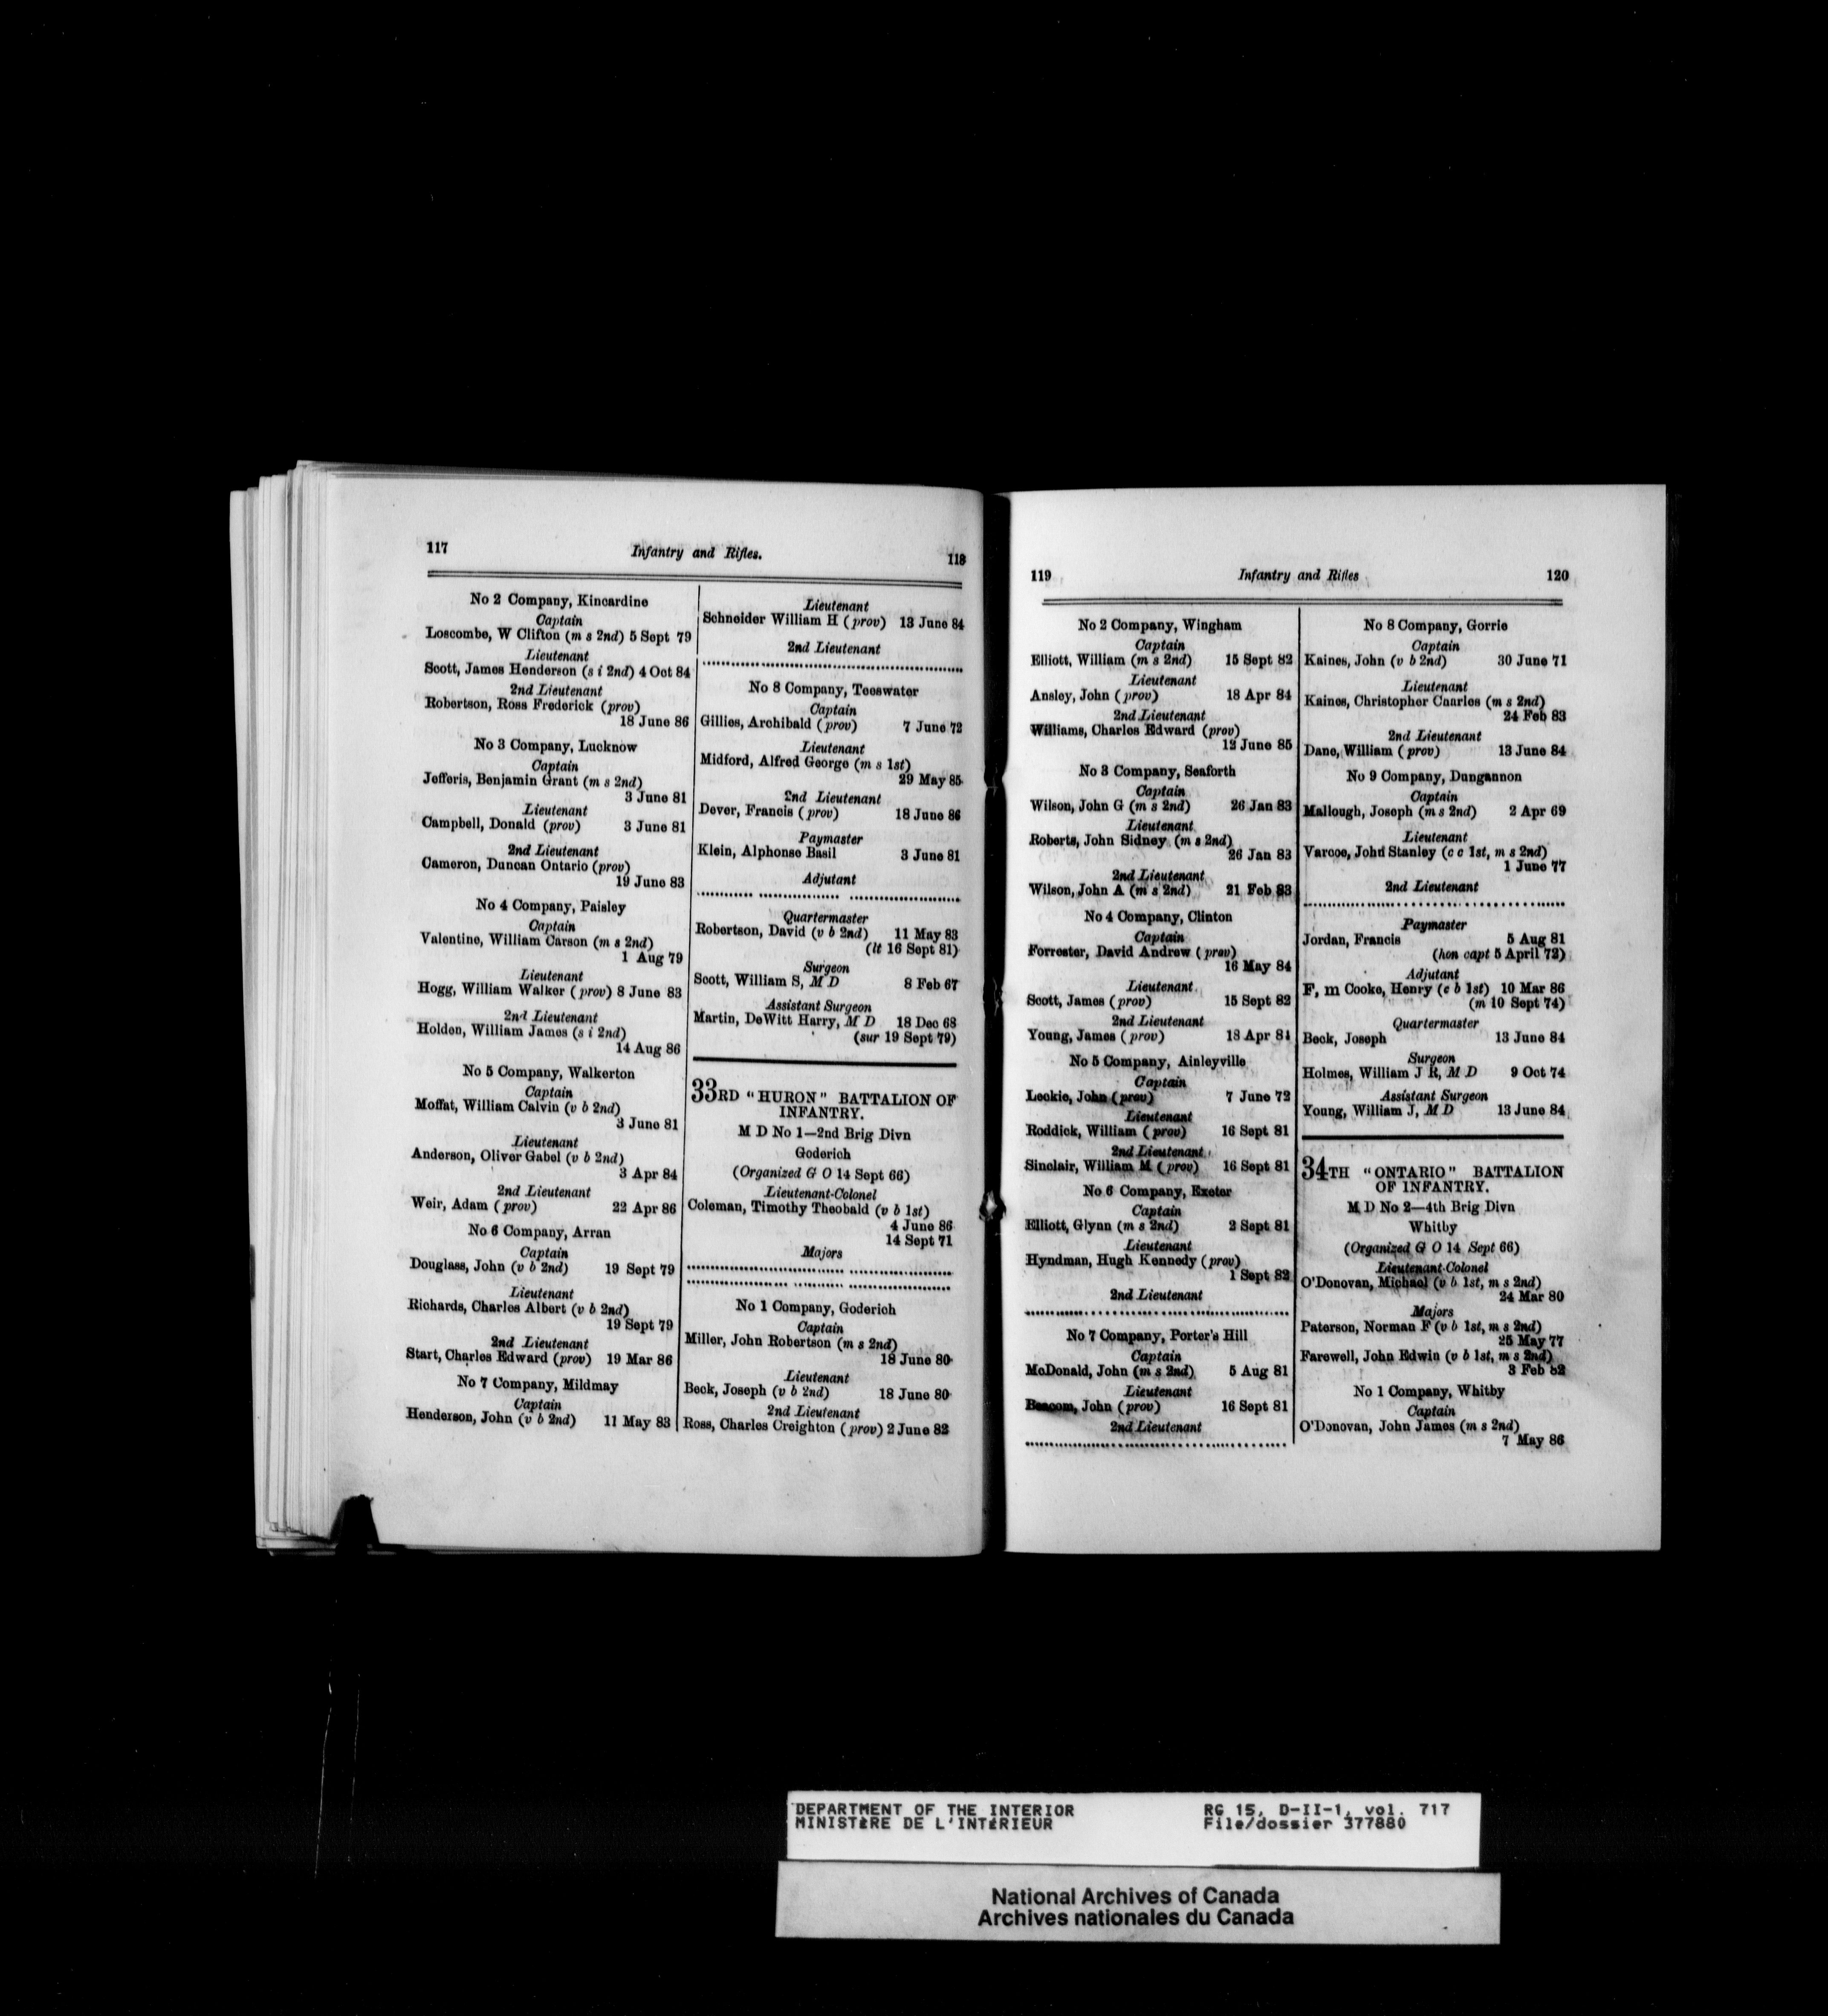 117 Infantry and Rifles. 118
No 2 Company, Kincardine
Captain
Loscombe, W Clifton (m s 2nd) 5 Sept 79
Lieutenant
Scott, James Henderson (s i 2nd) 4 Oct 84
2nd Lieutenant
Robertson, Ross Frederick (prov)
18 June 86
No 3 Company, Lucknow
Captain
Jefferis, Benjamin Grant (m s 2nd)
3 June 81
Lieutenant
Campbell, Donald (prov) 3 June 81
2nd Lieutenant
Cameron, Duncan Ontario (prov)
19 June 83
No 4 Company, Paisley
Captain
Valentine, William Carson (m s 2nd)
1 Aug 79
Lieutenant
Hogg, William Walker (prov) 8 June 83
2nd Lieutenant
Holden, William James (s i 2nd)
14 Aug 86
No 5 Company, Walkerton
Captain
Moffat, William Calvin (v b 2nd)
3 June 81
Lieutenant
Anderson, Oliver Gabel (v b 2nd)
3 Apr 84
2nd Lieutenant
Weir, Adam (prov) 22 Apr 86
No 6 Company, Arran
Captain
Douglass, John (v b 2nd) 19 Sept 79
Lieutenant
Richards, Charles Albert (v b 2nd)
19 Sept 79
2nd Lieutenant
Start, Charles Edward (prov) 19 Mar 86
No 7 Company, Mildmay
Captain
Henderson, John (v b 2nd) 11 May 83
Lieutenant
Schneider William H (prov) 13 June 84
2nd Lieutenant
No 8 Company, Teeswater
Captain
Gillies, Archibald (prov) 7 June 72
Lieutenant
Midford, Alfred George (m s 1st)
29 May 85
2nd Lieutenant
Dever, Francis (prov) 18 June 86
Paymaster
Klein, Alphonse Basil 3 June 81
Adjutant
Quartermaster
Robertson, David (v b 2nd) 11 May 83
(lt 16 Sept 81)
Surgeon
Scott, William S, M D 8 Feb 67
Assistant Surgeon
Martin, DeWitt Harry, M D 18 Dec 68
(sur 19 Sept 79)
33RD "HURON" BATTALION OF
INFANTRY.
M D No 1—2nd Brig Divn
Goderich
(Organized G O 14 Sept 66)
Lieutenant-Colonel
Coleman, Timothy Theobald (v b 1st)
4 June 86
14 Sept 71
Majors
No 1 Company, Goderich
Captain
Miller, John Robertson (m s 2nd)
18 June 80
Lieutenant
Beck, Joseph (v b 2nd) 18 June 80
2nd Lieutenant
Ross, Charles Creighton (prov) 2 June 82
119 Infantry and Rifles 120
No 2 Company, Wingham
Captain
Elliott, William (m s 2nd) 15 Sept 82
Lieutenant
Ansley, John (prov) 18 Apr 84
2nd Lieutenant
Williams, Charles Edward (prov)
12 June 85
No 3 Company, Seaforth
Captain
Wilson, John G (m s 2nd) 26 Jan 83
Lieutenant
Roberts, John Sidney (m s 2nd)
26 Jan 83
2nd Lieutenant
Wilson, John A (m s 2nd) 21 Feb 83
No 4 Company, Clinton
Captain
Forrester, David Andrew (prov)
16 May 84
Lieutenant
Scott, James (prov) 15 Sept 82
2nd Lieutenant
Young, James (prov) 18 Apr 84
No 5 Company, Ainleyville
Captain
Leckie, John (prov) 7 June 72
Lieutenant
Roddick, William (prov) 16 Sept 81
2nd Lieutenant
Sinclair, William M (prov) 16 Sept 81
No 6 Company, Exeter
Captain
Elliott, Glynn (m s 2nd) 2 Sept 81
Lieutenant
Hyndman, Hugh Kennedy (prov)
1 Sept 82
2nd Lieutenant
No 7 Company, Porter's Hill
Captain
McDonald, John (m s 2nd) 5 Aug 81
Lieutenant
Beacom, John (prov) 16 Sept 81
2nd Lieutenant
No 8 Company, Gorrie
Captain
Kaines, John (v b 2nd) 30 June 71
Lieutenant
Kaines, Christopher Charles (m s 2nd)
24 Feb 83
2nd Lieutenant
Dane, William (prov) 13 June 84
No 9 Company, Dungannon
Captain
Mallough, Joseph (m s 2nd) 2 Apr 69
Lieutenant
Varcoe, John Stanley (c c 1st, m s 2nd)
1 June 77
2nd Lieutenant
Paymaster
Jordan, Francis 5 Aug 81
(hon capt 5 April 72)
Adjutant
F, m Cooke, Henry (c b 1st) 10 Mar 86
(m 10 Sept 74)
Quartermaster
Beck, Joseph 13 June 84
Surgeon
Holmes, William J R, M D 9 Oct 74
Assistant Surgeon
Young, William J, M D 13 June 84
34TH "ONTARIO" BATTALION
OF INFANTRY.
M D No 2—4th Brig Divn
Whitby
(Organized G O 14 Sept 66)
Lieutenant-Colonel
O'Donovan, Michael (v b 1st, m s 2nd)
24 Mar 80
Majors
Paterson, Norman F (v b 1st, m s 2nd)
25 May 77
Farewell, John Edwin (v b 1st, m s 2nd)
3 Feb 82
No 1 Company, Whitby
Captain
O'Donovan, John James (m s 2nd)
7 May 86
DEPARTMENT OF THE INTERIOR RG 15, D-II-1, vol. 717
MINISTÈRE DE L'INTÉRIEUR File/dossier 377880
National Archives of Canada
Archives nationales du Canada